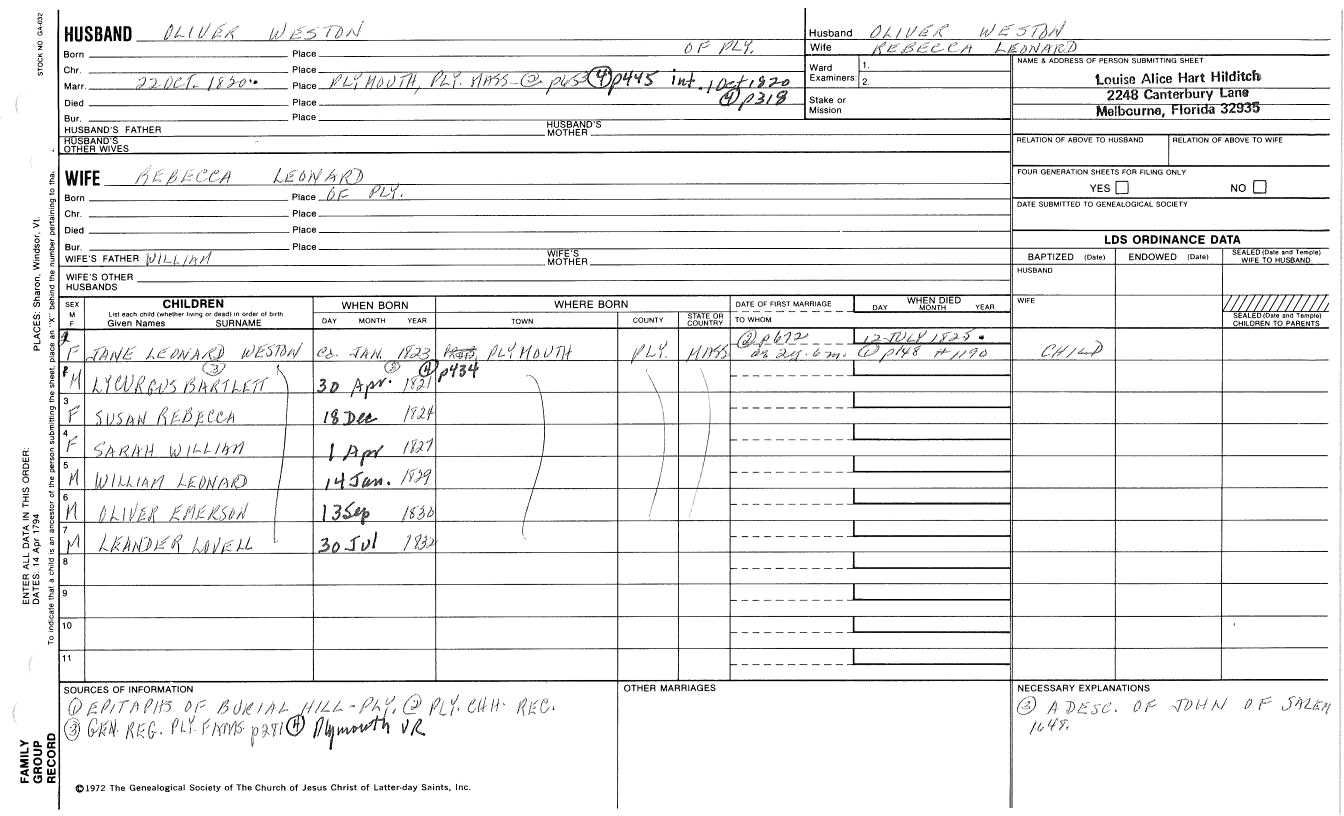 STOCK NO GA-032
HUSBAND OLIVER WESTON
Born Place OF PLY.
Chr. Place
Marr. 22 OCT. 1820. Place PLYMOUTH, PLY. MASS ② p653 ④ p445 int. 1 Oct 1820
Died Place ④ p318
Bur. Place
HUSBAND'S FATHER HUSBAND'S MOTHER
HUSBAND'S OTHER WIVES
Husband OLIVER WESTON
Wife REBECCA LEONARD
Ward Examiners: 1.
2.
Stake or Mission
NAME & ADDRESS OF PERSON SUBMITTING SHEET
Louise Alice Hart Hilditch
2248 Canterbury Lane
Melbourne, Florida 32935
RELATION OF ABOVE TO HUSBAND RELATION OF ABOVE TO WIFE
FOUR GENERATION SHEETS FOR FILING ONLY
YES NO
DATE SUBMITTED TO GENEALOGICAL SOCIETY
WIFE REBECCA LEONARD
Born Place OF PLY.
Chr. Place
Died Place
Bur. Place
WIFE'S FATHER WILLIAM WIFE'S MOTHER
WIFE'S OTHER HUSBANDS
LDS ORDINANCE DATA
BAPTIZED (Date) ENDOWED (Date) SEALED (Date and Temple) WIFE TO HUSBAND
HUSBAND
WIFE
SEALED (Date and Temple) CHILDREN TO PARENTS
SEX M F
CHILDREN
List each child (whether living or dead) in order of birth
Given Names SURNAME
WHEN BORN
DAY MONTH YEAR
WHERE BORN
TOWN COUNTY STATE OR COUNTRY
DATE OF FIRST MARRIAGE
TO WHOM
WHEN DIED
DAY MONTH YEAR
② p672 12 JULY 1825.
2 F JANE LEONARD WESTON ca. JAN. 1823 PLYMOUTH PLY. MASS ae 2y. 6m. ① p148 #1190 CHILD
③ ③ ④ p434
1 M LYCURGUS BARTLETT 30 Apr. 1821
3 F SUSAN REBECCA 18 Dec 1824
4 F SARAH WILLIAM 1 Apr 1827
5 M WILLIAM LEONARD 14 Jan. 1829
6 M OLIVER EMERSON 13 Sep 1830
7 M LEANDER LOVELL 30 Jul 1832
8
9
10
11
SOURCES OF INFORMATION
① EPITAPHS OF BURIAL HILL-PLY. ② PLY. CHH. REC.
③ GEN. REG. PLY. FAMS. p281 ④ Plymouth VR
OTHER MARRIAGES
NECESSARY EXPLANATIONS
③ A DESC. OF JOHN OF SALEM
1648.
©1972 The Genealogical Society of The Church of Jesus Christ of Latter-day Saints, Inc.
FAMILY GROUP RECORD
ENTER ALL DATA IN THIS ORDER:
DATES: 14 Apr 1794
PLACES: Sharon, Windsor, Vt.
To indicate that a child is an ancestor of the person submitting the sheet, place an "X" behind the number pertaining to tha.